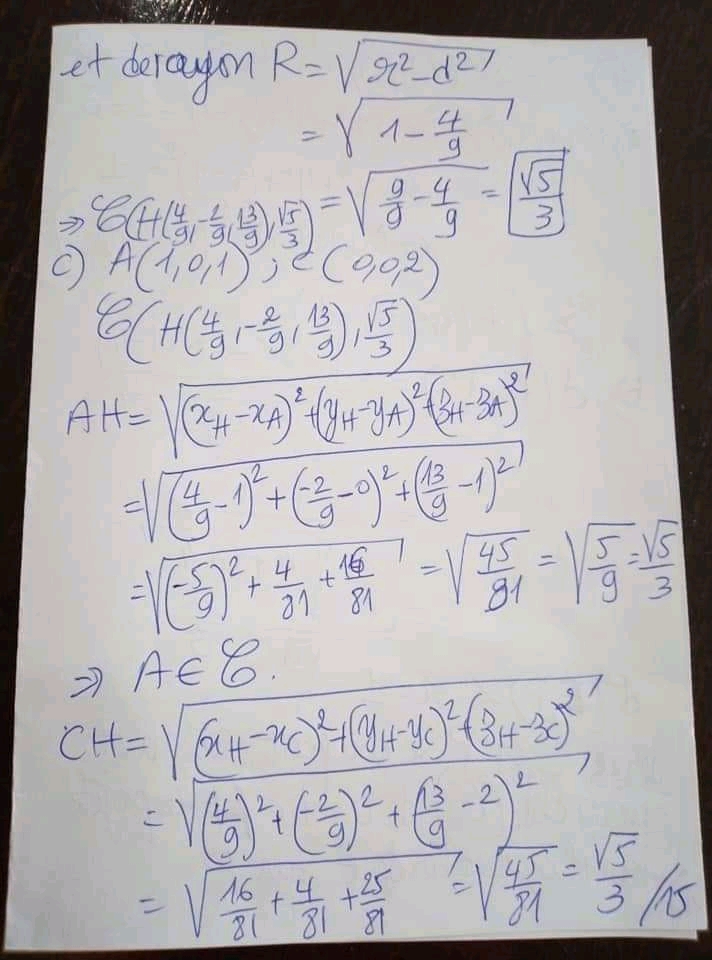 et de rayon R = √(r² - d²)
= √(1 - 4/9)
⇒ 𝒞(H(4/9, -2/9, 13/9), √5/3) = √(9/9 - 4/9) = √5/3
c) A(1,0,1) ; C(0,0,2)
𝒞(H(4/9, -2/9, 13/9), √5/3)
AH = √((x_H - x_A)² + (y_H - y_A)² + (z_H - z_A)²)
= √((4/9 - 1)² + (-2/9 - 0)² + (13/9 - 1)²)
= √((-5/9)² + 4/81 + 16/81) = √(45/81) = √(5/9) = √5/3
⇒ A ∈ 𝒞.
CH = √((x_H - x_C)² + (y_H - y_C)² + (z_H - z_C)²)
= √((4/9)² + (-2/9)² + (13/9 - 2)²)
= √(16/81 + 4/81 + 25/81) = √(45/81) = √5/3 /15